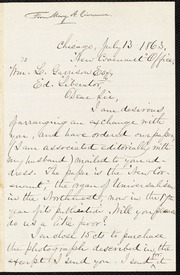 From Mary A. Livermore
Chicago, July 13 1863,
New Covenant Office,
Wm. L. Garrison Esq.
Ed. Liberator,
Dear Sir,
I am desirous
of arranging an exchange with
you, and have ordered our paper
(I am associated editorially with
my husband) mailed to your ad-
dress. The paper is the "New Cov-
enant," the organ of Universalism
in the Northwest, now in the
year of its publication. Will you
do us a like favor?
I enclose 15 cts to purchase
the photograph described in the
I send it